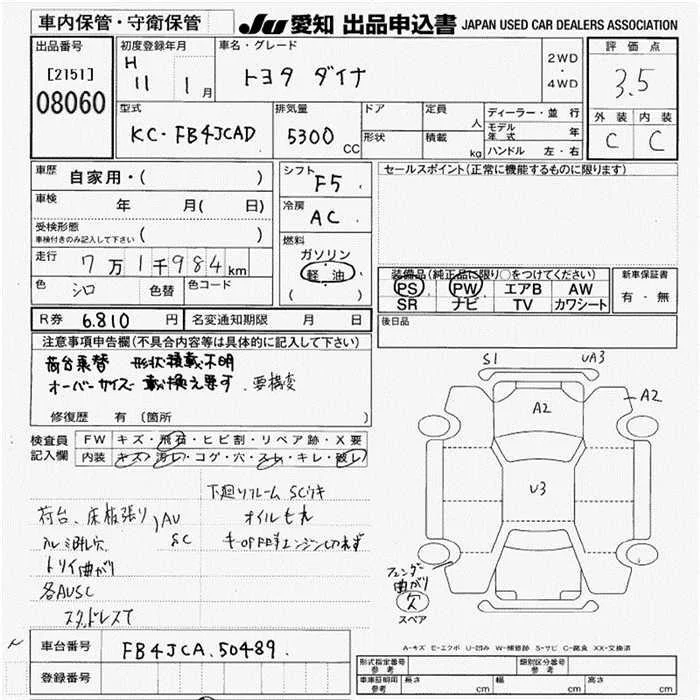 車内保管・守衛保管
JU 愛知 出品申込書 JAPAN USED CAR DEALERS ASSOCIATION
出品番号
[2151]
08060
初度登録年月
H 11 1月
車名・グレード
トヨタ ダイナ
2WD
・
4WD
評価点
3.5
外装 内装
C C
型式
KC-FB4JCAD
排気量
5300 CC
ドア
形状
定員 人
積載 kg
ディーラー・並行
モデル年式 年
ハンドル 左・右
車歴
自家用・( )
車検 年 月( 日)
受検形態
車検付きのみ記入して下さい ( )
走行 7万1千984km
色 シロ 色替 色コード
シフト
F5
冷房
AC
燃料
ガソリン
軽油
( )
セールスポイント(正常に機能するものに限ります)
装備品(純正品に限り○をつけてください)
PS PW エアB AW
SR ナビ TV カワシート
新車保証書
有・無
R券 6.810 円 名変通知期限 月 日
後日品
注意事項申告欄(不具合内容等は具体的に記入して下さい)
荷台乗替 形状積載不明
オーバーサイズ 載換え要す. 要構変
修復歴 有 〔箇所 〕
検査員
記入欄
FW キズ・飛石・ヒビ割・リペア跡・X要
内装 キズ・汚レ・コゲ・穴・スレ・キレ・破レ
下廻りフレームSCサキ
荷台、床板張り AU
オイルモレ
SC
トリイ曲がり
各AUSC
スタッドレスT
S1 UA3
A2
A2
U3
フェンダー
曲がり
欠
スペア
車台番号 FB4JCA.50489.
登録番号
A-キズ E-エクボ U-凹み W-補修跡 S-サビ C-腐食 XX-交換済
形式指定番号 参考
類別区分番号 参考
車庫証明用 参考 長さ cm 幅 cm 高さ cm